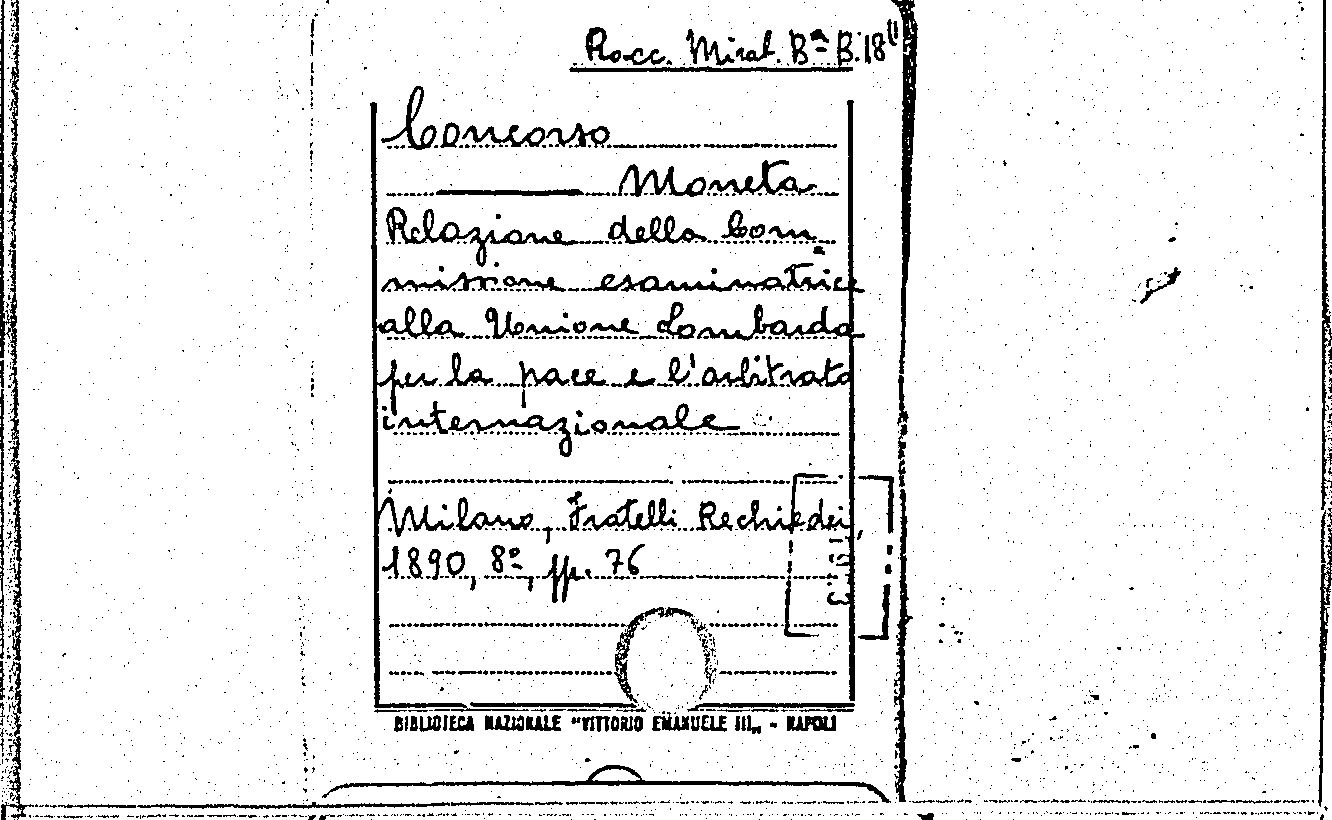 Racc. Mirat. Bª B. 18
Concorso
Moneta
Relazione della Com
missione esaminatrice
alla Unione Lombarda
per la pace e l'arbitrato
internazionale
Milano, Fratelli Rechiedei,
1890, 8º, pp. 76
BIBLIOTECA NAZIONALE "VITTORIO EMANUELE III„ - NAPOLI